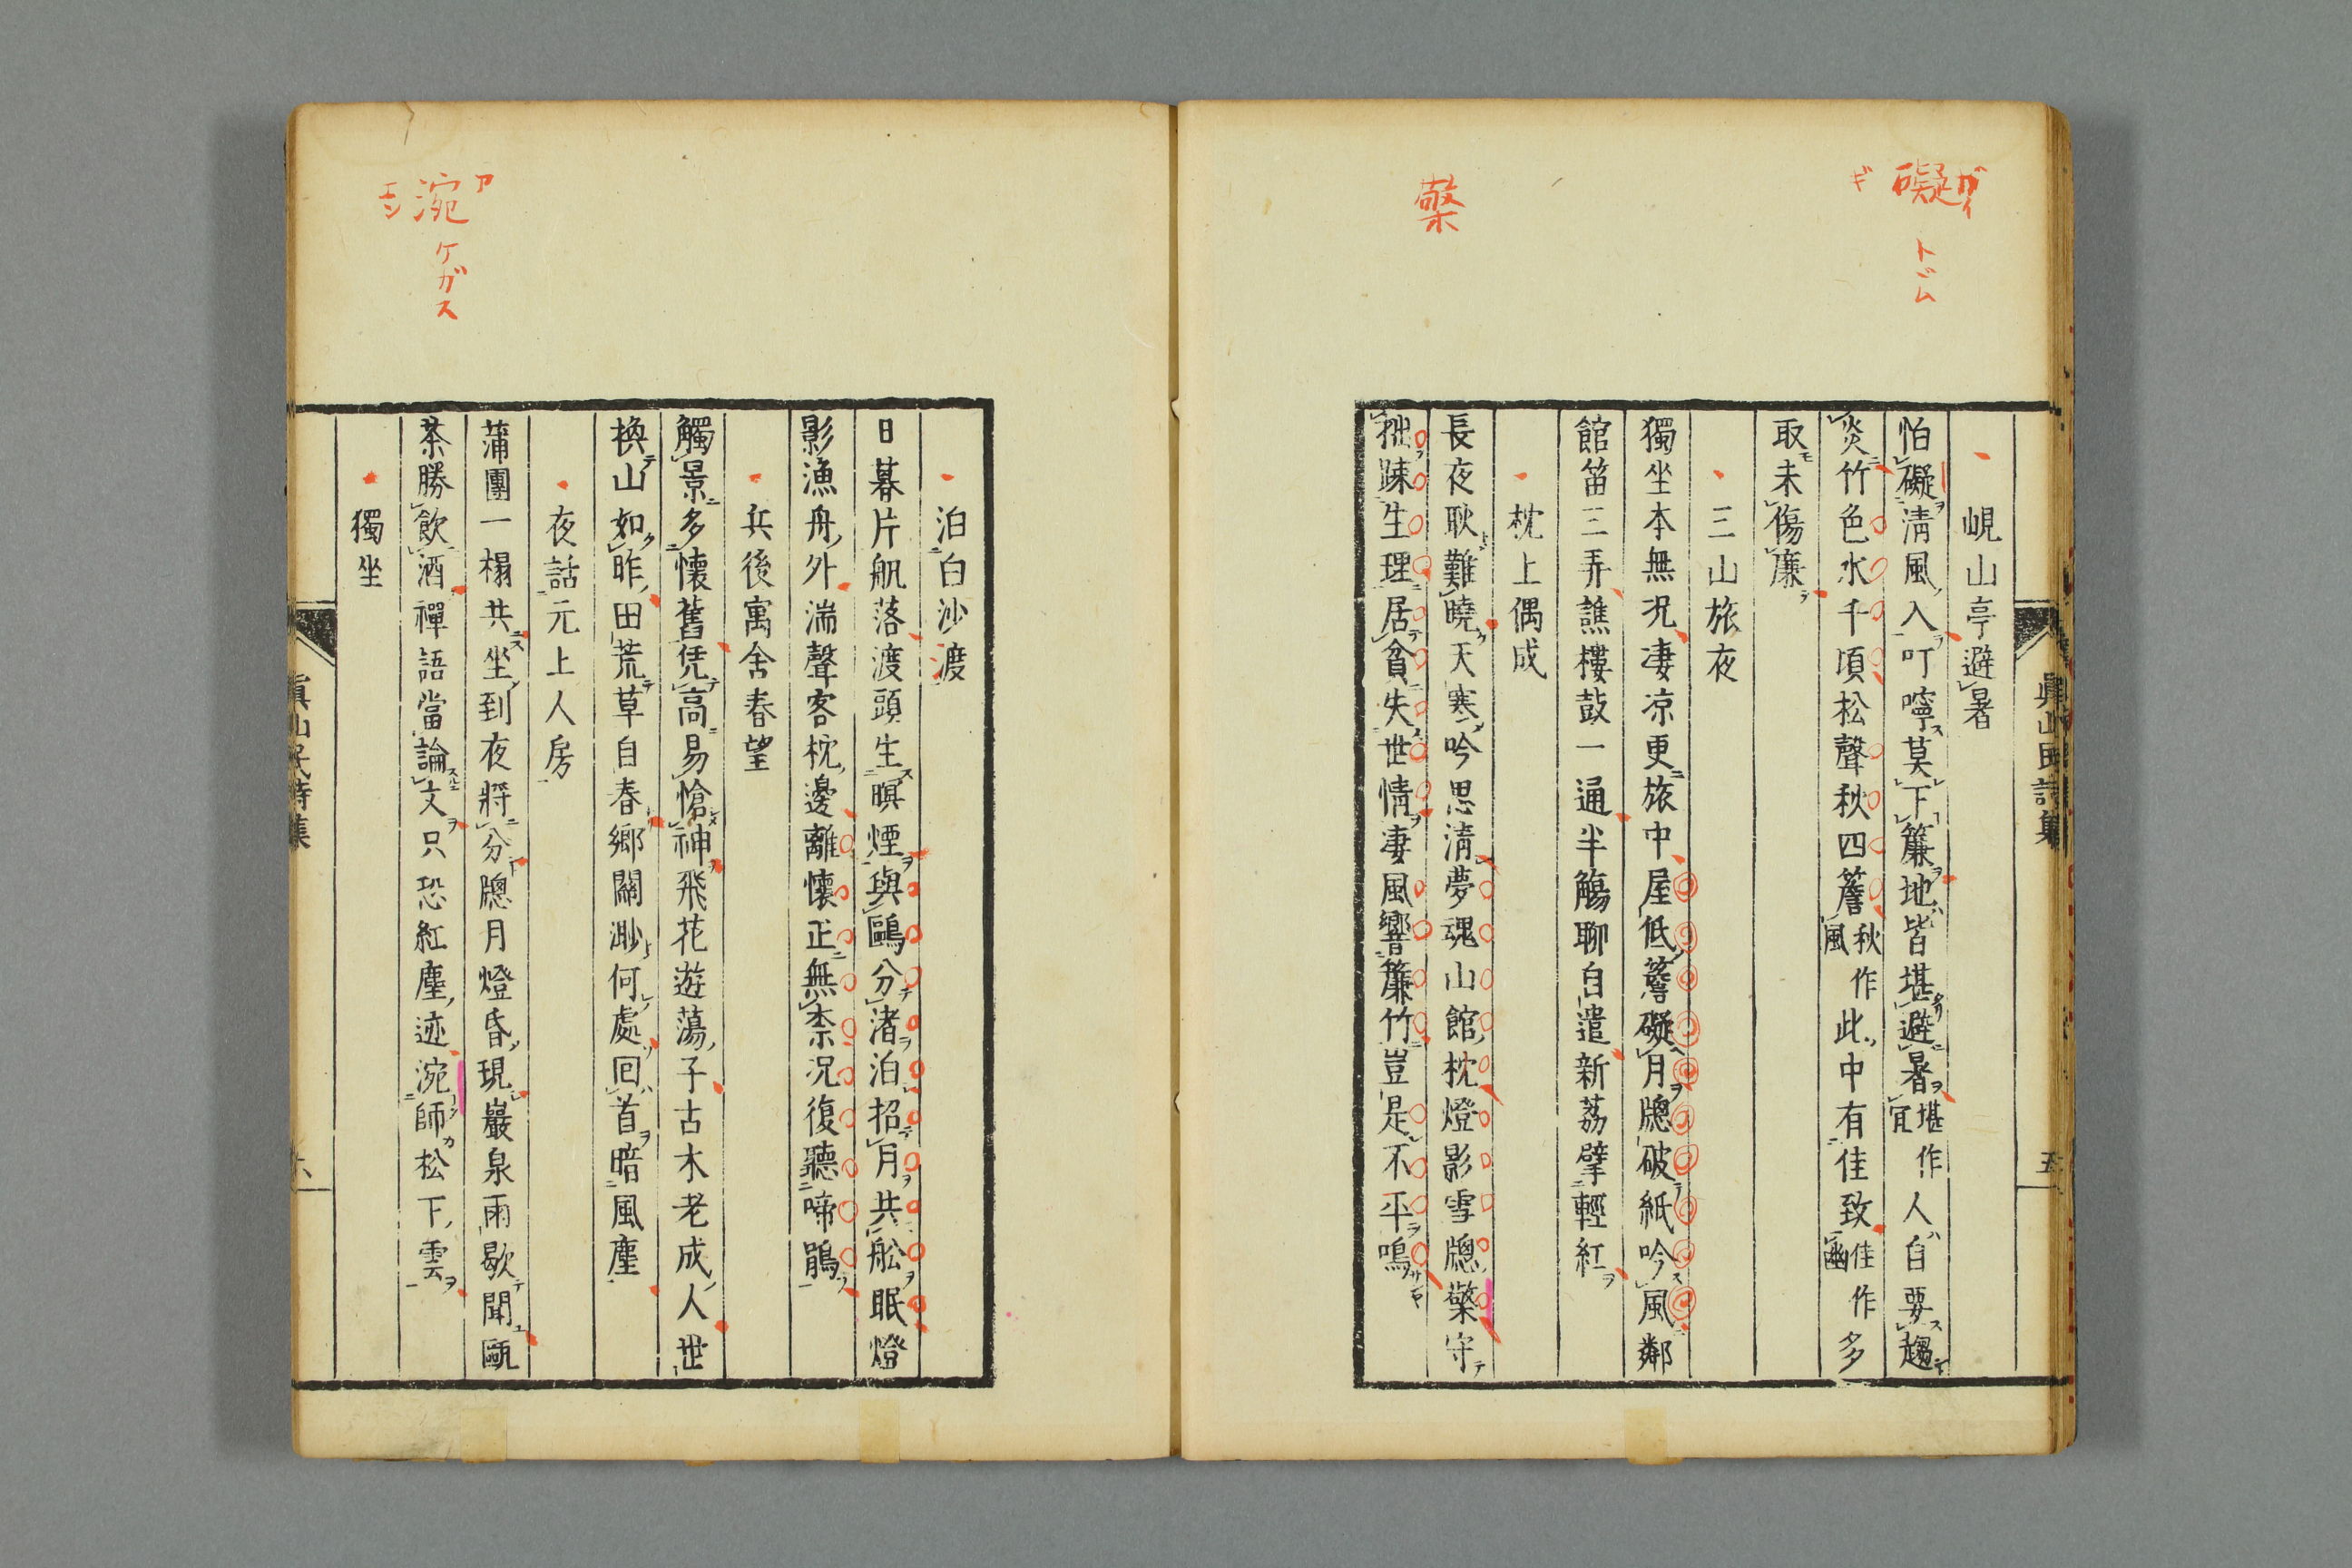 礙
ガイ
ギ
トヾム
檠
峴山亭避暑
怕礙淸風入叮嚀莫下簾地皆堪避暑堪作宜人自要趨
炎竹色水千頃松聲秋四簷秋作風此中有佳致佳作幽多
取未傷廉
三山旅夜
獨坐本無況凄凉更旅中屋低簷礙月牕破紙吟風鄰
館笛三弄譙樓鼓一通半觴聊自遣新荔擘輕紅
枕上偶成
長夜耿難曉天寒吟思淸夢魂山館枕燈影雪牕檠守
拙踈生理居貧失世情凄風響簾竹豈是不平鳴
眞山民詩集
五
涴
ア
エン
ケガス
泊白沙渡
日暮片帆落渡頭生暝煙與鷗分渚泊招月共舩眠燈
影漁舟外湍聲客枕邊離懷正無柰況復聽啼鵑
兵後寓舍春望
觸景多懷舊凭高易愴神飛花遊蕩子古木老成人世
換山如昨田荒草自春鄉關渺何處回首暗風塵
夜話元上人房
蒲團一榻共坐到夜將分牕月燈昏現巖泉雨歇聞甌
茶勝飮酒禪語當論文只恐紅塵迹涴師松下雲
獨坐
眞山民詩集
六